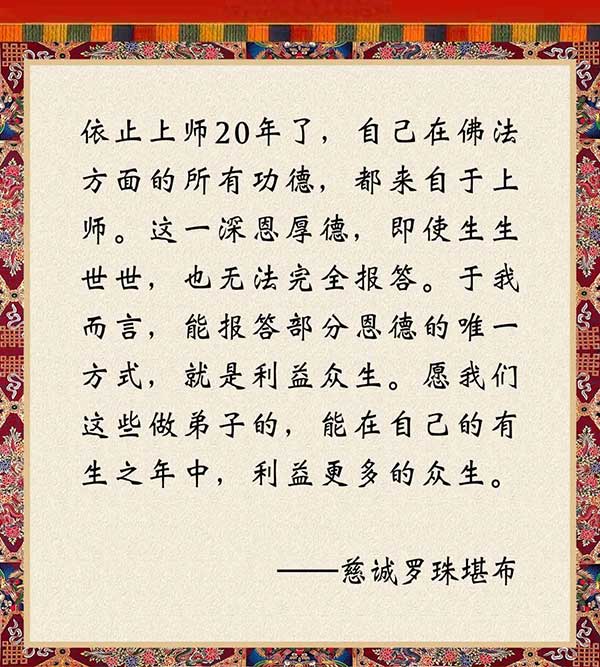 依止上师20年了，自己在佛法
方面的所有功德，都来自于上
师。这一深恩厚德，即使生生
世世，也无法完全报答。于我
而言，能报答部分恩德的唯一
方式，就是利益众生。愿我们
这些做弟子的，能在自己的有
生之年中，利益更多的众生。
——慈诚罗珠堪布